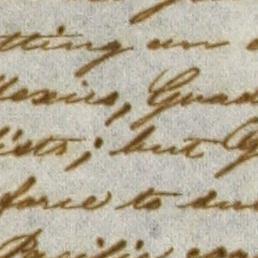 tting un
Mexico, Guad
ists; but G
force to su
Pacific